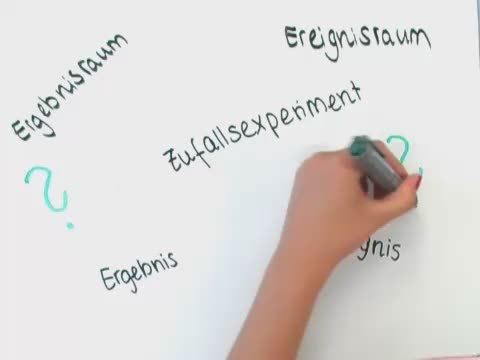 Ergebnisraum
Ereignisraum
Zufallsexperiment
?
?
Ergebnis
gnis